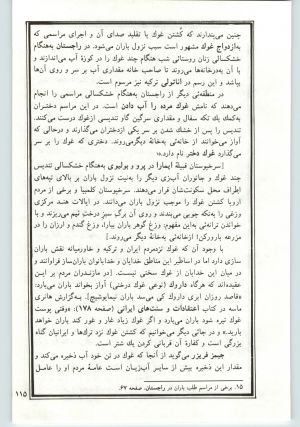 چنین می‌پندارند که کُشتن غوک یا تقلید صدای آن و اجرای مراسمی که
به‌ازدواج غوک مشهور است سبب نزول باران می‌شود. در راجستان به‌هنگام
خشکسالی زنان روستائی شب هنگام چند غوک را در کوزهٔ آب می‌اندازند و
با آن به‌درخانه‌ها می‌روند تا صاحب خانه مقداری آب بر سر و روی آن‌ها
بپاشد و این رسم در آناتولی ترکیه نیز مرسوم است.
در منطقه‌ئی دیگر از راجستان به‌هنگام خشکسالی مراسمی را انجام
می‌دهند که نامش غوک مرده را آب دادن است. در این مراسم دختران
به‌کمک یک تکه سفال و مقداری سرگین گاو تندیسی ازغوک درست می‌کنند.
تندیس را پس از خشک شدن بر سر یکی ازدختران می‌گذارند و درحالی که
آواز می‌خوانند از خانه‌ئی به‌خانهٔ دیگرمی‌روند. دختری که غوک را بر سر
می‌گذارد غوک دختر نام دارد.۱۵
[سرخپوستان قبیلهٔ ایمارا در پرو و بولیوی به‌هنگام خشکسالی تندیس
چند غوک و جانوران آبزی دیگر را به‌نیت نزول باران بر بالای تپه‌های
اطراف محل سکونت‌شان قرار می‌دهند. سرخپوستان کلمبیا و برخی از مردم
اروپا کشتن غوک را موجب نزول باران می‌دانند. در ایالات هند مرکزی
وزغی را به‌تکه چوبی می‌بندند و روی آن برگ سبز درخت نیم می‌ریزند و با
خواندن ترانه‌ئی به‌این مفهوم، وزغ گوهر باران بیار! وزغ گندم و ارزن را در
مزرعه بارورکن! ازخانه‌ئی به‌خانهٔ دیگر می‌روند.]
با وجود آن که غوک نزدمردم ایران و ترکیه و خاورمیانه نقش باران
سازی دارد اما در اساطیر این مناطق خدایان و خدابانوان باران‌ساز فراوانند و
در میان این خدایان از غوک سخنی نیست. [در مازندران مردم بر این
عقیده‌اند که هرگاه داروک (نوعی غوک درختی) آواز بخواند باران می‌بارد:
«قاصد روزان ابری داروک کی می‌رسد باران نیمایوشیج]. به‌گزارش هانری
ماسه در کتاب اعتقادات و سنت‌های ایرانی (صفحه ۱۷۸): «وقتی پوست
غوک تیره شود باران می‌بارد و اگر غوک زیاد غار و غور کند باران خواهد
بارید.» و در جائی دیگر می‌خوانیم که کشتن غوک نزد ترک‌ها و ایرانیان گناه
بزرگی است و کفارهٔ آن قربانی کردن یک شتر است.
جیمز فریزر می‌گوید از آنجا که غوک در تن خود آب ذخیره می‌کند و
مقدار این ذخیره بیش از سایر آب‌زیان است عامهٔ مردم او را عامل
۱۵. برخی از مراسم طلب باران در راجستان. صفحه ۶۷.
۱۱۵